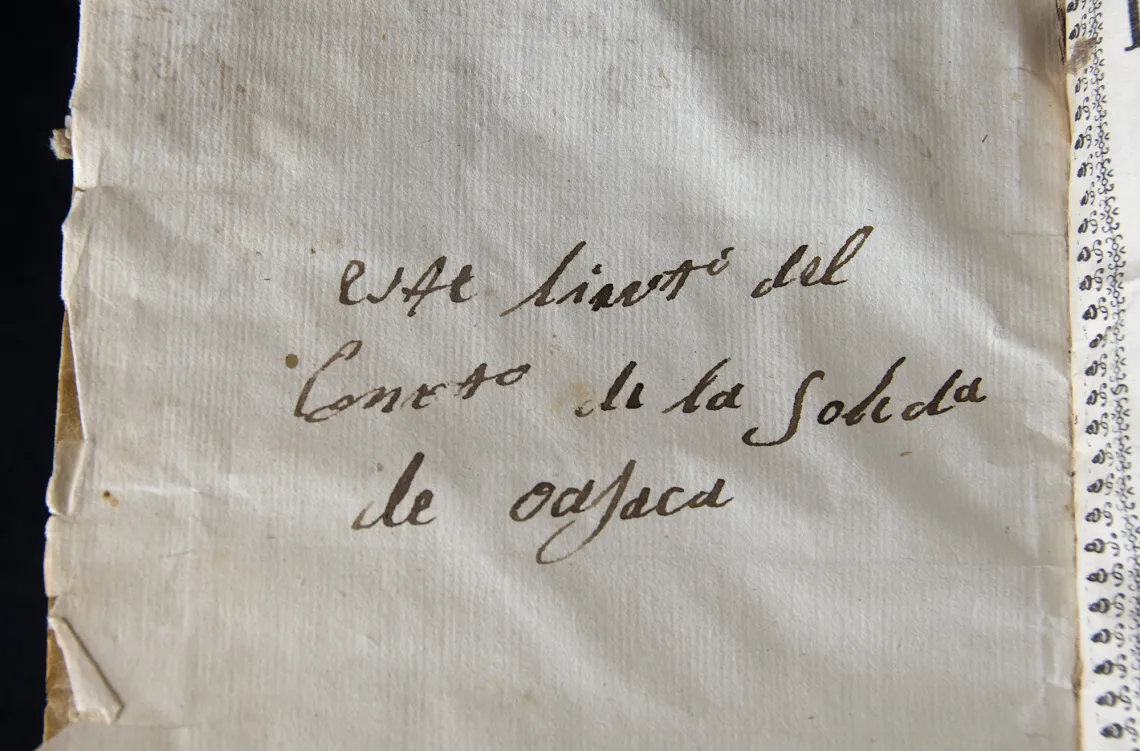 este livrto del
Convto de la Soleda
de oajaca